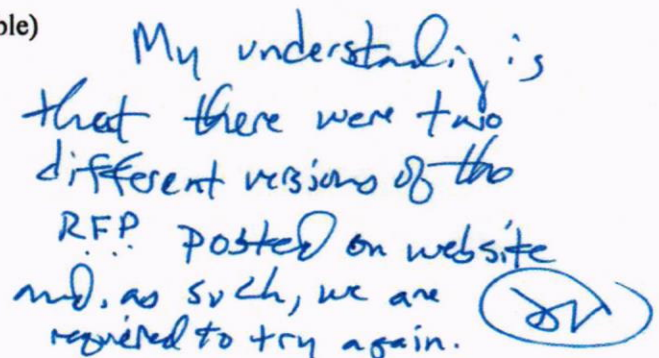 ble)
My understanding is
that there were two
different versions of the
RFP posted on website
and, as such, we are
required to try again.